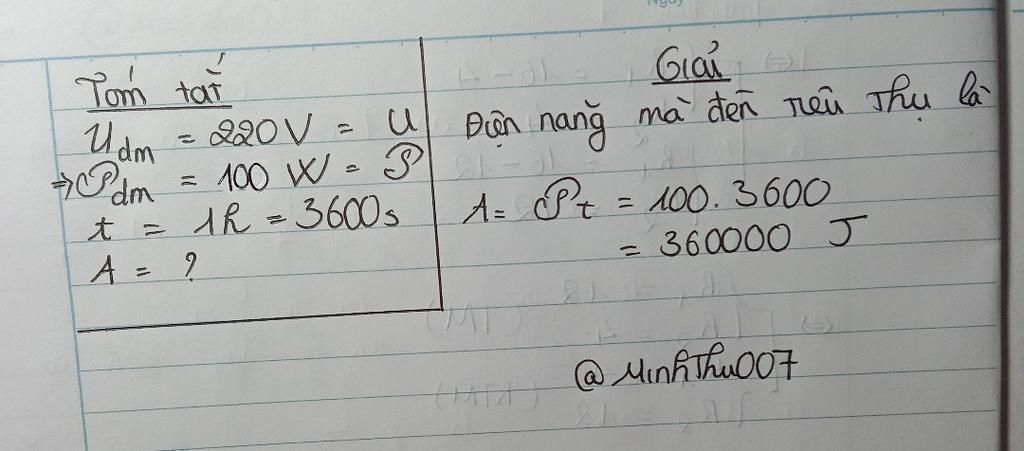 Tóm tắt
Uđm = 220V = U
=> 𝒫đm = 100 W = 𝒫
t = 1h = 3600s
A = ?
Giải
Điện năng mà đèn tiêu thụ là
A = 𝒫t = 100.3600
= 360000 J
@MinhThu007